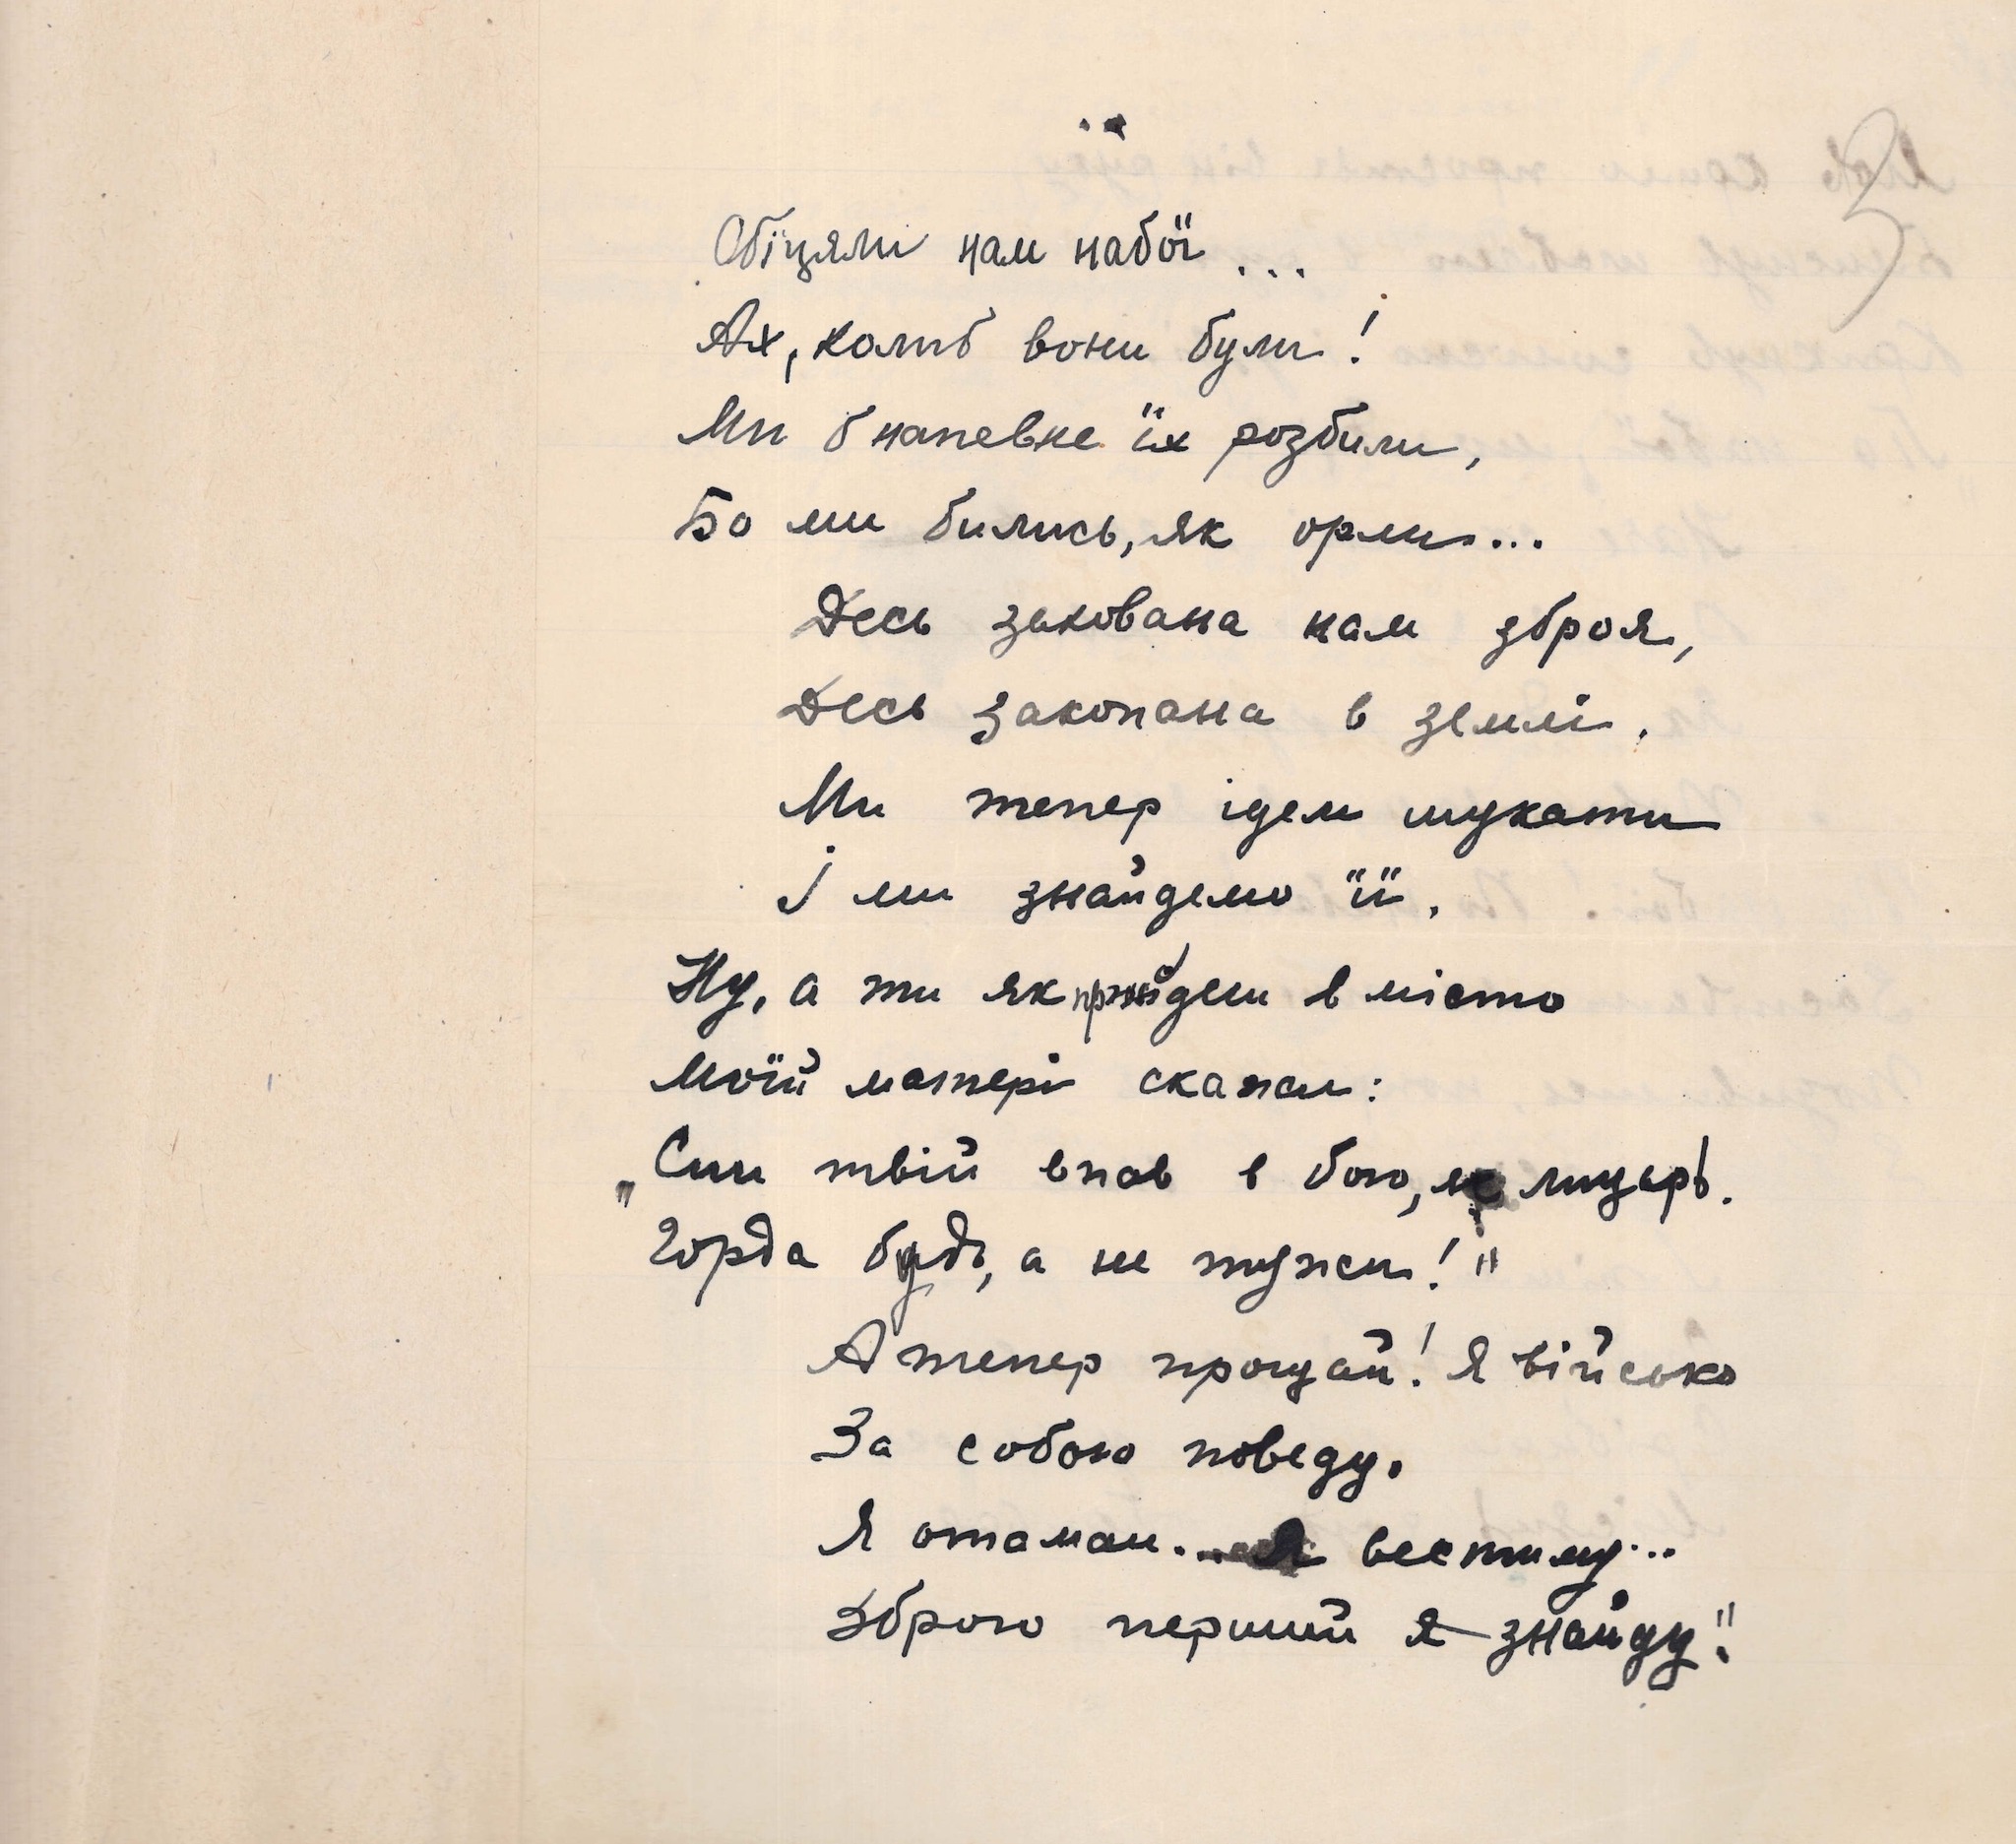 Обіцяли нам набої...
Ах, колиб вони були!
Ми б напевне їх розбили,
Бо ми бились, як орли...
Десь захована нам зброя,
Десь закопана в землі.
Ми тепер ідем шукати
І ми знайдемо її.
Ну, а ти як прийдеш в місто
Моїй матері скажи:
„Син твій впав в бою, як лицарь.
Горда будь, а не тужи!"
А тепер прощай! Я військо
За собою поведу.
Я отаман... Я вестиму...
Зброю перший я знайду".